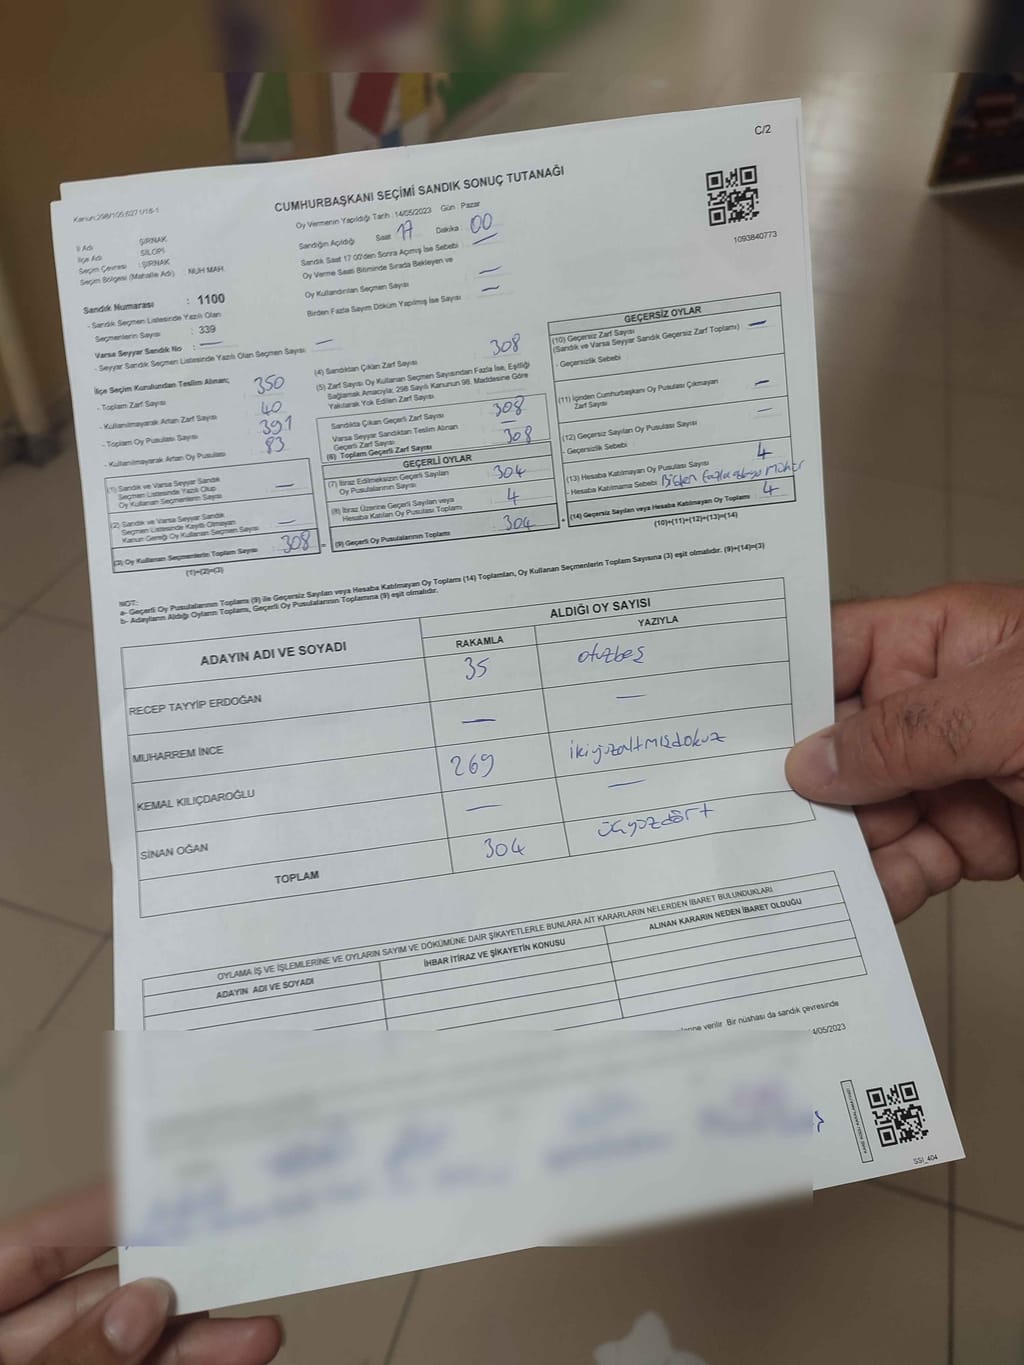 C/2
Kanun:298/105,6271/16-1
CUMHURBAŞKANI SEÇİMİ SANDIK SONUÇ TUTANAĞI
1093840773
İl Adı : ŞIRNAK
İlçe Adı : SİLOPİ
Seçim Çevresi : ŞIRNAK
Seçim Bölgesi (Mahalle Adı) : NUH MAH.
Sandık Numarası : 1100
- Sandık Seçmen Listesinde Yazılı Olan
Seçmenlerin Sayısı : 339
Varsa Seyyar Sandık No : —
- Seyyar Sandık Seçmen Listesinde Yazılı Olan Seçmen Sayısı : —
Oy Vermenin Yapıldığı Tarih : 14/05/2023 Gün : Pazar
Sandığın Açıldığı Saat : 17 Dakika : 00
Sandık Saat 17:00'den Sonra Açımış İse Sebebi : —
Oy Verme Saati Bitiminde Sırada Bekleyen ve
Oy Kullandırılan Seçmen Sayısı : —
Birden Fazla Sayım Döküm Yapılmış İse Sayısı : —
İlçe Seçim Kurulundan Teslim Alınan;
- Toplam Zarf Sayısı : 350
- Kullanılmayarak Artan Zarf Sayısı : 40
- Toplam Oy Pusulası Sayısı : 391
- Kullanılmayarak Artan Oy Pusulası : 83
(1) Sandık ve Varsa Seyyar Sandık
Seçmen Listesinde Yazılı Olup
Oy Kullanan Seçmenlerin Sayısı : —
(2) Sandık ve Varsa Seyyar Sandık
Seçmen Listesinde Kayıtlı Olmayan
Kanun Gereği Oy Kullanan Seçmen Sayısı : —
(3) Oy Kullanan Seçmenlerin Toplam Sayısı : 308 =
(1)+(2)=(3)
(4) Sandıktan Çıkan Zarf Sayısı : 308
(5) Zarf Sayısı Oy Kullanan Seçmen Sayısından Fazla İse, Eşitliği
Sağlamak Amacıyla; 298 Sayılı Kanunun 98. Maddesine Göre
Yakılarak Yok Edilen Zarf Sayısı :
Sandıkta Çıkan Geçerli Zarf Sayısı : 308
Varsa Seyyar Sandıktan Teslim Alınan
Geçerli Zarf Sayısı : —
(6) Toplam Geçerli Zarf Sayısı : 308
GEÇERLİ OYLAR
(7) İtiraz Edilmeksizin Geçerli Sayılan
Oy Pusulalarının Sayısı : 304
(8) İtiraz Üzerine Geçerli Sayılan veya
Hesaba Katılan Oy Pusulası Toplamı : 4
(9) Geçerli Oy Pusulalarının Toplamı : 304 +
GEÇERSİZ OYLAR
(10) Geçersiz Zarf Sayısı
(Sandık ve Varsa Seyyar Sandık Geçersiz Zarf Toplamı) : —
- Geçersizlik Sebebi :
(11) İçinden Cumhurbaşkanı Oy Pusulası Çıkmayan
Zarf Sayısı : —
(12) Geçersiz Sayılan Oy Pusulası Sayısı : —
- Geçersizlik Sebebi :
(13) Hesaba Katılmayan Oy Pusulası Sayısı : 4
- Hesaba Katılmama Sebebi : Birden fazla adaya mühür
(14) Geçersiz Sayılan veya Hesaba Katılmayan Oy Toplamı : 4
(10)+(11)+(12)+(13)=(14)
NOT:
a- Geçerli Oy Pusulalarının Toplamı (9) ile Geçersiz Sayılan veya Hesaba Katılmayan Oy Toplamı (14) Toplamları, Oy Kullanan Seçmenlerin Toplam Sayısına (3) eşit olmalıdır. (9)+(14)=(3)
b- Adayların Aldığı Oyların Toplamı, Geçerli Oy Pusulalarının Toplamına (9) eşit olmalıdır.
ADAYIN ADI VE SOYADI
ALDIĞI OY SAYISI
RAKAMLA YAZIYLA
RECEP TAYYİP ERDOĞAN 35 otuzbeş
MUHARREM İNCE — —
KEMAL KILIÇDAROĞLU 269 ikiyüzaltmışdokuz
SİNAN OĞAN — —
TOPLAM 304 üçyüzdört
OYLAMA İŞ VE İŞLEMLERİNE VE OYLARIN SAYIM VE DÖKÜMÜNE DAİR ŞİKAYETLERLE BUNLARA AİT KARARLARIN NELERDEN İBARET BULUNDUKLARI
ADAYIN ADI VE SOYADI İHBAR İTİRAZ VE ŞİKAYETİN KONUSU ALINAN KARARIN NEDEN İBARET OLDUĞU
verilir. Bir nüshası da sandık çevresinde
4/05/2023
SSİ_404